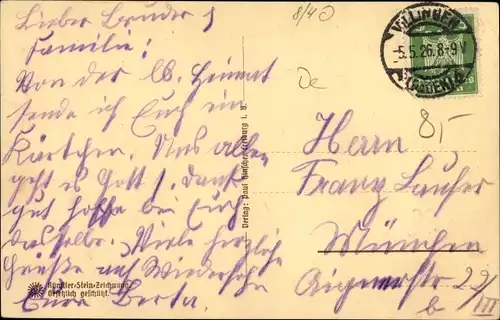 Lieber Bruder &
Familie!
Von der lb. Heimat
sende ich Euch ein
Kärtchen. Uns allen
geht es Gott s. Dank
gut hoffe bei Euch
dasselbe. Viele herzliche
Grüße auf Wiedersehn
Eure Berta.
Künstler-Stein-Zeichnung.
Gesetzlich geschützt.
Verlag: Paul Freiburg i. B.
8/40
De
VILLINGEN
-5.5.26.8-9V
(BADEN)
8,-
Herrn
Franz Laufer
München
29/III